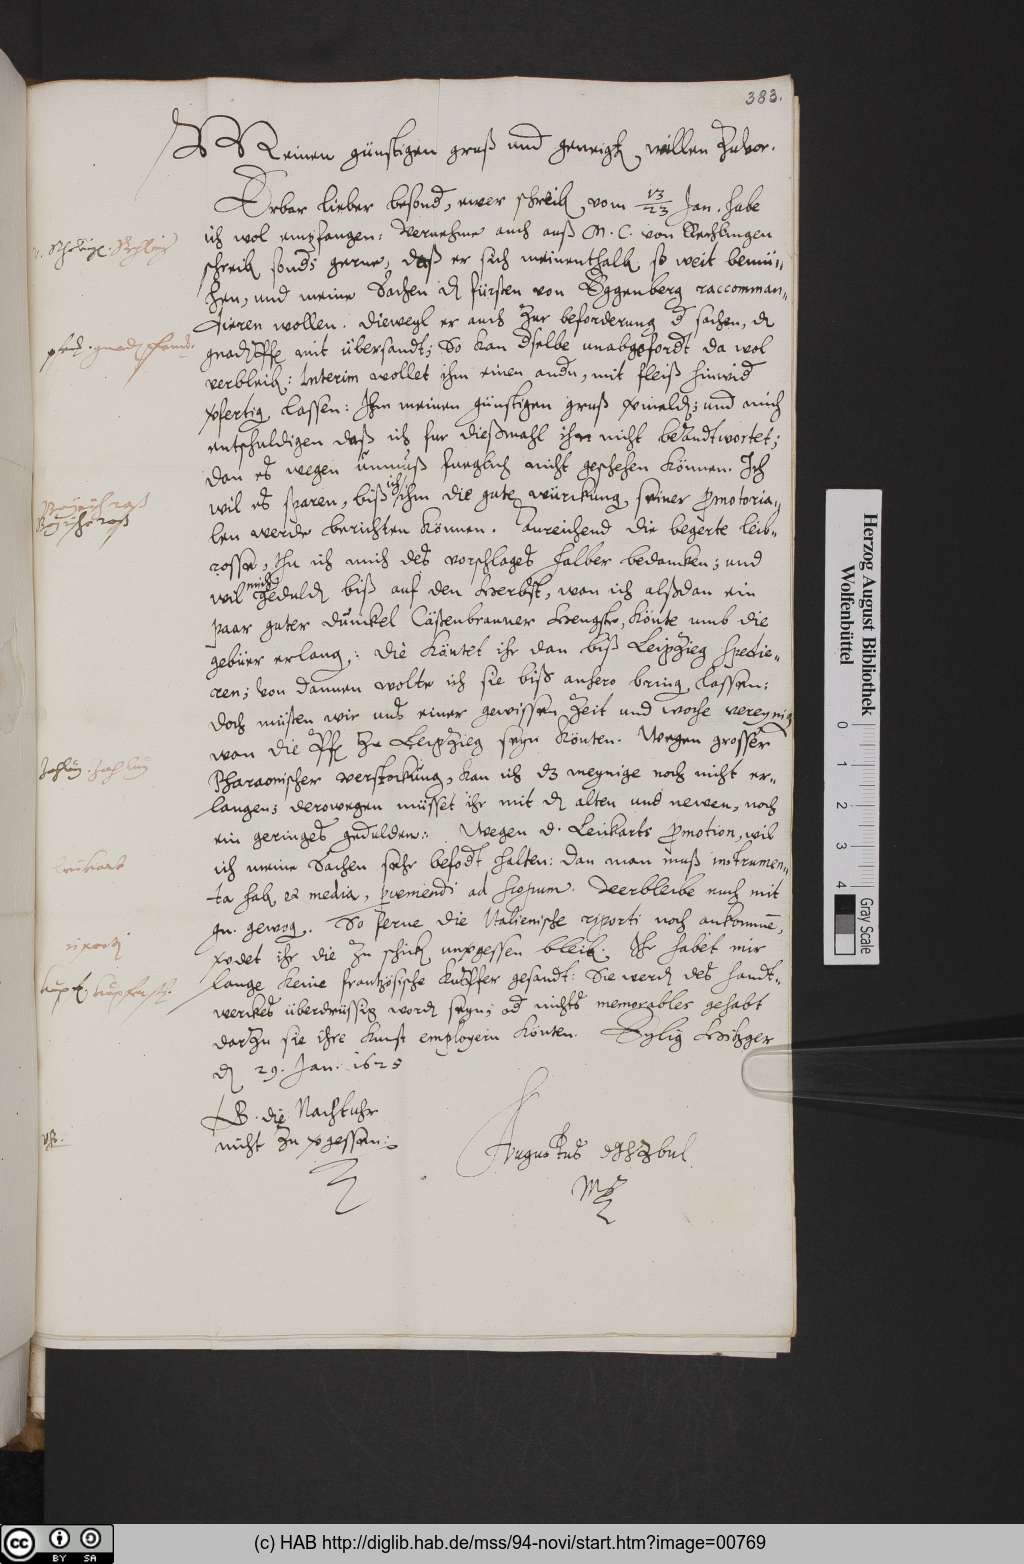 383.
Meinen günstigen gruß und geneigt, willen zuvor.
Erbar lieber besond, ewer schreib, vom 13/23 Jan. habe
ich wol empfangen: Vernehme auch auß M. C. von Rechlingen
schreib sonds gerne, daß er sich meinenthalb so weit bemü-
hen, und meine Sachen d fürsten von Eggenberg raccomman-
dieren wollen. dieweyl er auch zur beforderung d sachen, d
mit übersandt; So kan dselbe unabgefordt da wol
verbleib: Interim wollet ihm einen andn, mit fleiß hinwid
fertig lassen: Ihm meinen günstigen gruß vmeld; und mich
entschuldigen daß ich fur dießmahl ihm nicht beandtwortet;
dan es wegen unmuß fueglich nicht geschehen können. Ich
wil es sparen, biß ich ihm die gute würckung seiner promotoria-
len werde berichten können. Anreichend die begerte leib-
rosse, thu ich mich des vorschlages halber bedancken; und
wil mich gedulden biß auf den Herbst, wan ich alßdan ein
paar guter dunckel Cästenbrauner Hengste, könte umb die
gebüer erlang,: die köntet ihr dan biß Leipzieg spedie-
ren; von dannen wolte ich sie biß anhero bring lassen:
doch müsten wir uns einer gewissen Zeit und woche vereynig
wan die Pf zu Leipzieg seyn könten. Wegen grosser
Pharaonischer verstockung, kan ich dz meynige noch nicht er-
langen; derowegen müsset ihr mit d alten und newen, noch
ein geringes gedulden: Wegen d. Leukarts promotion, wil
ich meine Sachen sehr befodt halten: dan man muß instrumen-
ta hab et media, pveniendi ad scopum. Verbleibe euch mit
gn. gewog,. So ferne die Italienische riporti noch ankomme,
vodet ihr die zu schick unvgessen bleib. Ihr habet mir
lange keine frantzösische kupffer gesandt: Sie werd des handt-
werckes überdrüssig word seyn; od nichts memorables gehabt
darzu sie ihre kunst employern könten. Eylig Hitzger
d 29. Jan: 1625
P. die Nachtuhr
nicht zu vgessen:
Augustus
Mpp
riporti
Herzog August Bibliothek
Wolfenbüttel
0 1 2 3 4
Gray Scale
cc BY SA
(c) HAB http://diglib.hab.de/mss/94-novi/start.htm?image=00769